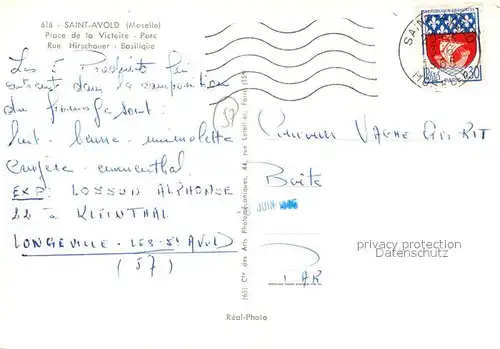 616 - SAINT-AVOLD (Moselle)
Place de la Victoire - Parc
Rue Hirschauer - Basilique
Les 5 Produits
entrent dans la composition
du fromage sont :
lait - beurre - mimolette
Cruyère - emmenthal
EXP: LOSSON ALPHONSE
22 à KLEINTHAL
LONGEVILLE-LES-St AVOLD
(57)
57
(65) Cie des Arts Photomécaniques, 44, rue Letellier, Paris (15e)
Réal-Photo
REPUBLIQUE FRANÇAISE
0,30
PARIS
Concours VACHE QUI RIT
Boîte
JUIN
PARIS
privacy protection
Datenschutz